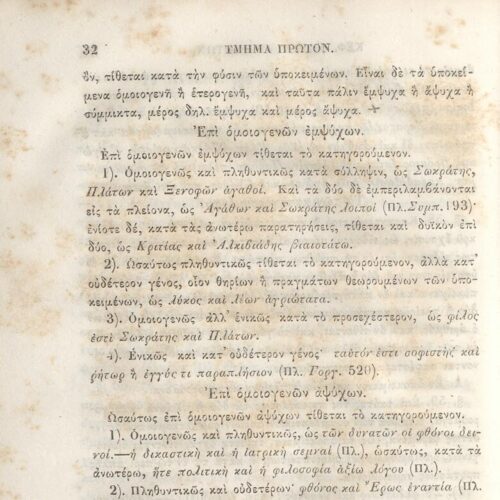 32 ΤΜΗΜΑ ΠΡΩΤΟΝ.
ὄν, τίθεται κατὰ τὴν φύσιν τῶν ὑποκειμένων. Εἶναι δὲ τὰ ὑποκεί-
μενα ὁμοιογενῆ ἢ ἑτερογενῆ, καὶ ταῦτα πάλιν ἔμψυχα ἢ ἄψυχα ἢ
σύμμικτα, μέρος δηλ. ἔμψυχα καὶ μέρος ἄψυχα.
Ἐπὶ ὁμοιογενῶν ἐμψύχων.
Ἐπὶ ὁμοιογενῶν ἐμψύχων τίθεται τὸ κατηγορούμενον.
1). Ὁμοιογενῶς καὶ πληθυντικῶς κατὰ σύλληψιν, ὡς Σωκράτης,
Πλάτων καὶ Ξενοφῶν ἀγαθοί. Καὶ τὰ δύο δὲ ἐμπεριλαμβάνονται
εἰς τὰ πλείονα, ὡς Ἀγάθων καὶ Σωκράτης λοιποί (Πλ. Συμπ. 193)·
ἐνίοτε δέ, κατὰ τὰς ἀνωτέρω παρατηρήσεις, τίθεται καὶ δυϊκὸν ἐπὶ
δύο, ὡς Κριτίας καὶ Ἀλκιβιάδης βιαιοτάτω.
2). Ὡσαύτως πληθυντικῶς τίθεται τὸ κατηγορούμενον, ἀλλὰ κατ'
οὐδέτερον γένος, οἷον θηρίων ἢ πραγμάτων θεωρουμένων τῶν ὑπο-
κειμένων, ὡς λύκος καὶ λέων ἀγριώτατα.
3). Ὁμοιογενῶς ἀλλ' ἑνικῶς κατὰ τὸ προσεχέστερον, ὡς φίλος
ἐστὶ Σωκράτης καὶ Πλάτων.
4). Ἑνικῶς καὶ κατ' οὐδέτερον γένος· ταὐτόν ἐστι σοφιστὴς καὶ
ῥήτωρ ἢ ἐγγύς τι παραπλήσιον (Πλ. Γοργ. 520).
Ἐπὶ ὁμοιογενῶν ἀψύχων.
Ὡσαύτως ἐπὶ ὁμοιογενῶν ἀψύχων τίθεται τὸ κατηγορούμενον.
1). Ὁμοιογενῶς καὶ πληθυντικῶς, ὡς τῶν δυνατῶν οἱ φθόνοι δει-
νοί.—ἡ δικαστικὴ καὶ ἡ ἰατρικὴ σεμναί (Πλ.), ὡσαύτως, κατὰ τὰ
ἀνωτέρω, ἥτε πολιτικὴ καὶ ἡ φιλοσοφία ἀξίω λόγου (Πλ.).
2). Πληθυντικῶς καὶ οὐδετέρως· φθόνος καὶ Ἔρως ἐναντία (Πλ.